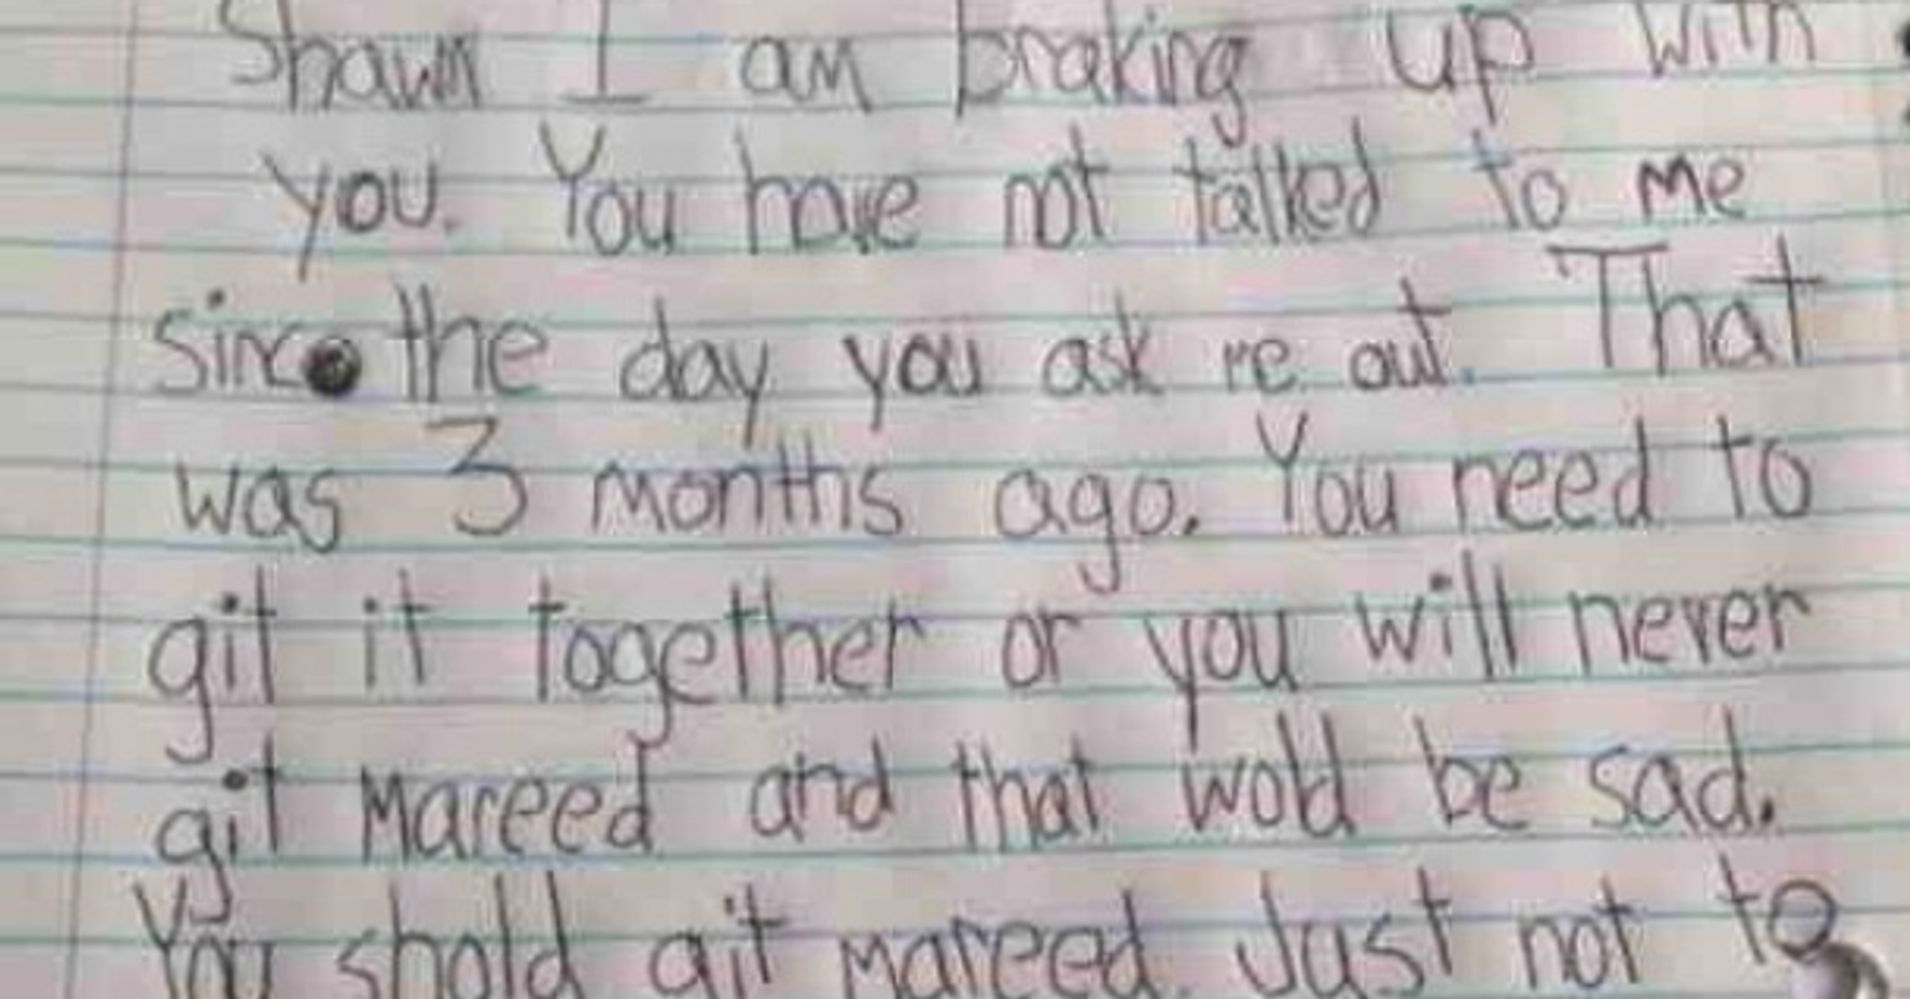 Shawn I am braking up with
you. You have not talked to me
since the day you ask me out. That
was 3 months ago. You need to
git it together or you will never
git mareed and that wold be sad.
You shold git mareed. Just not to